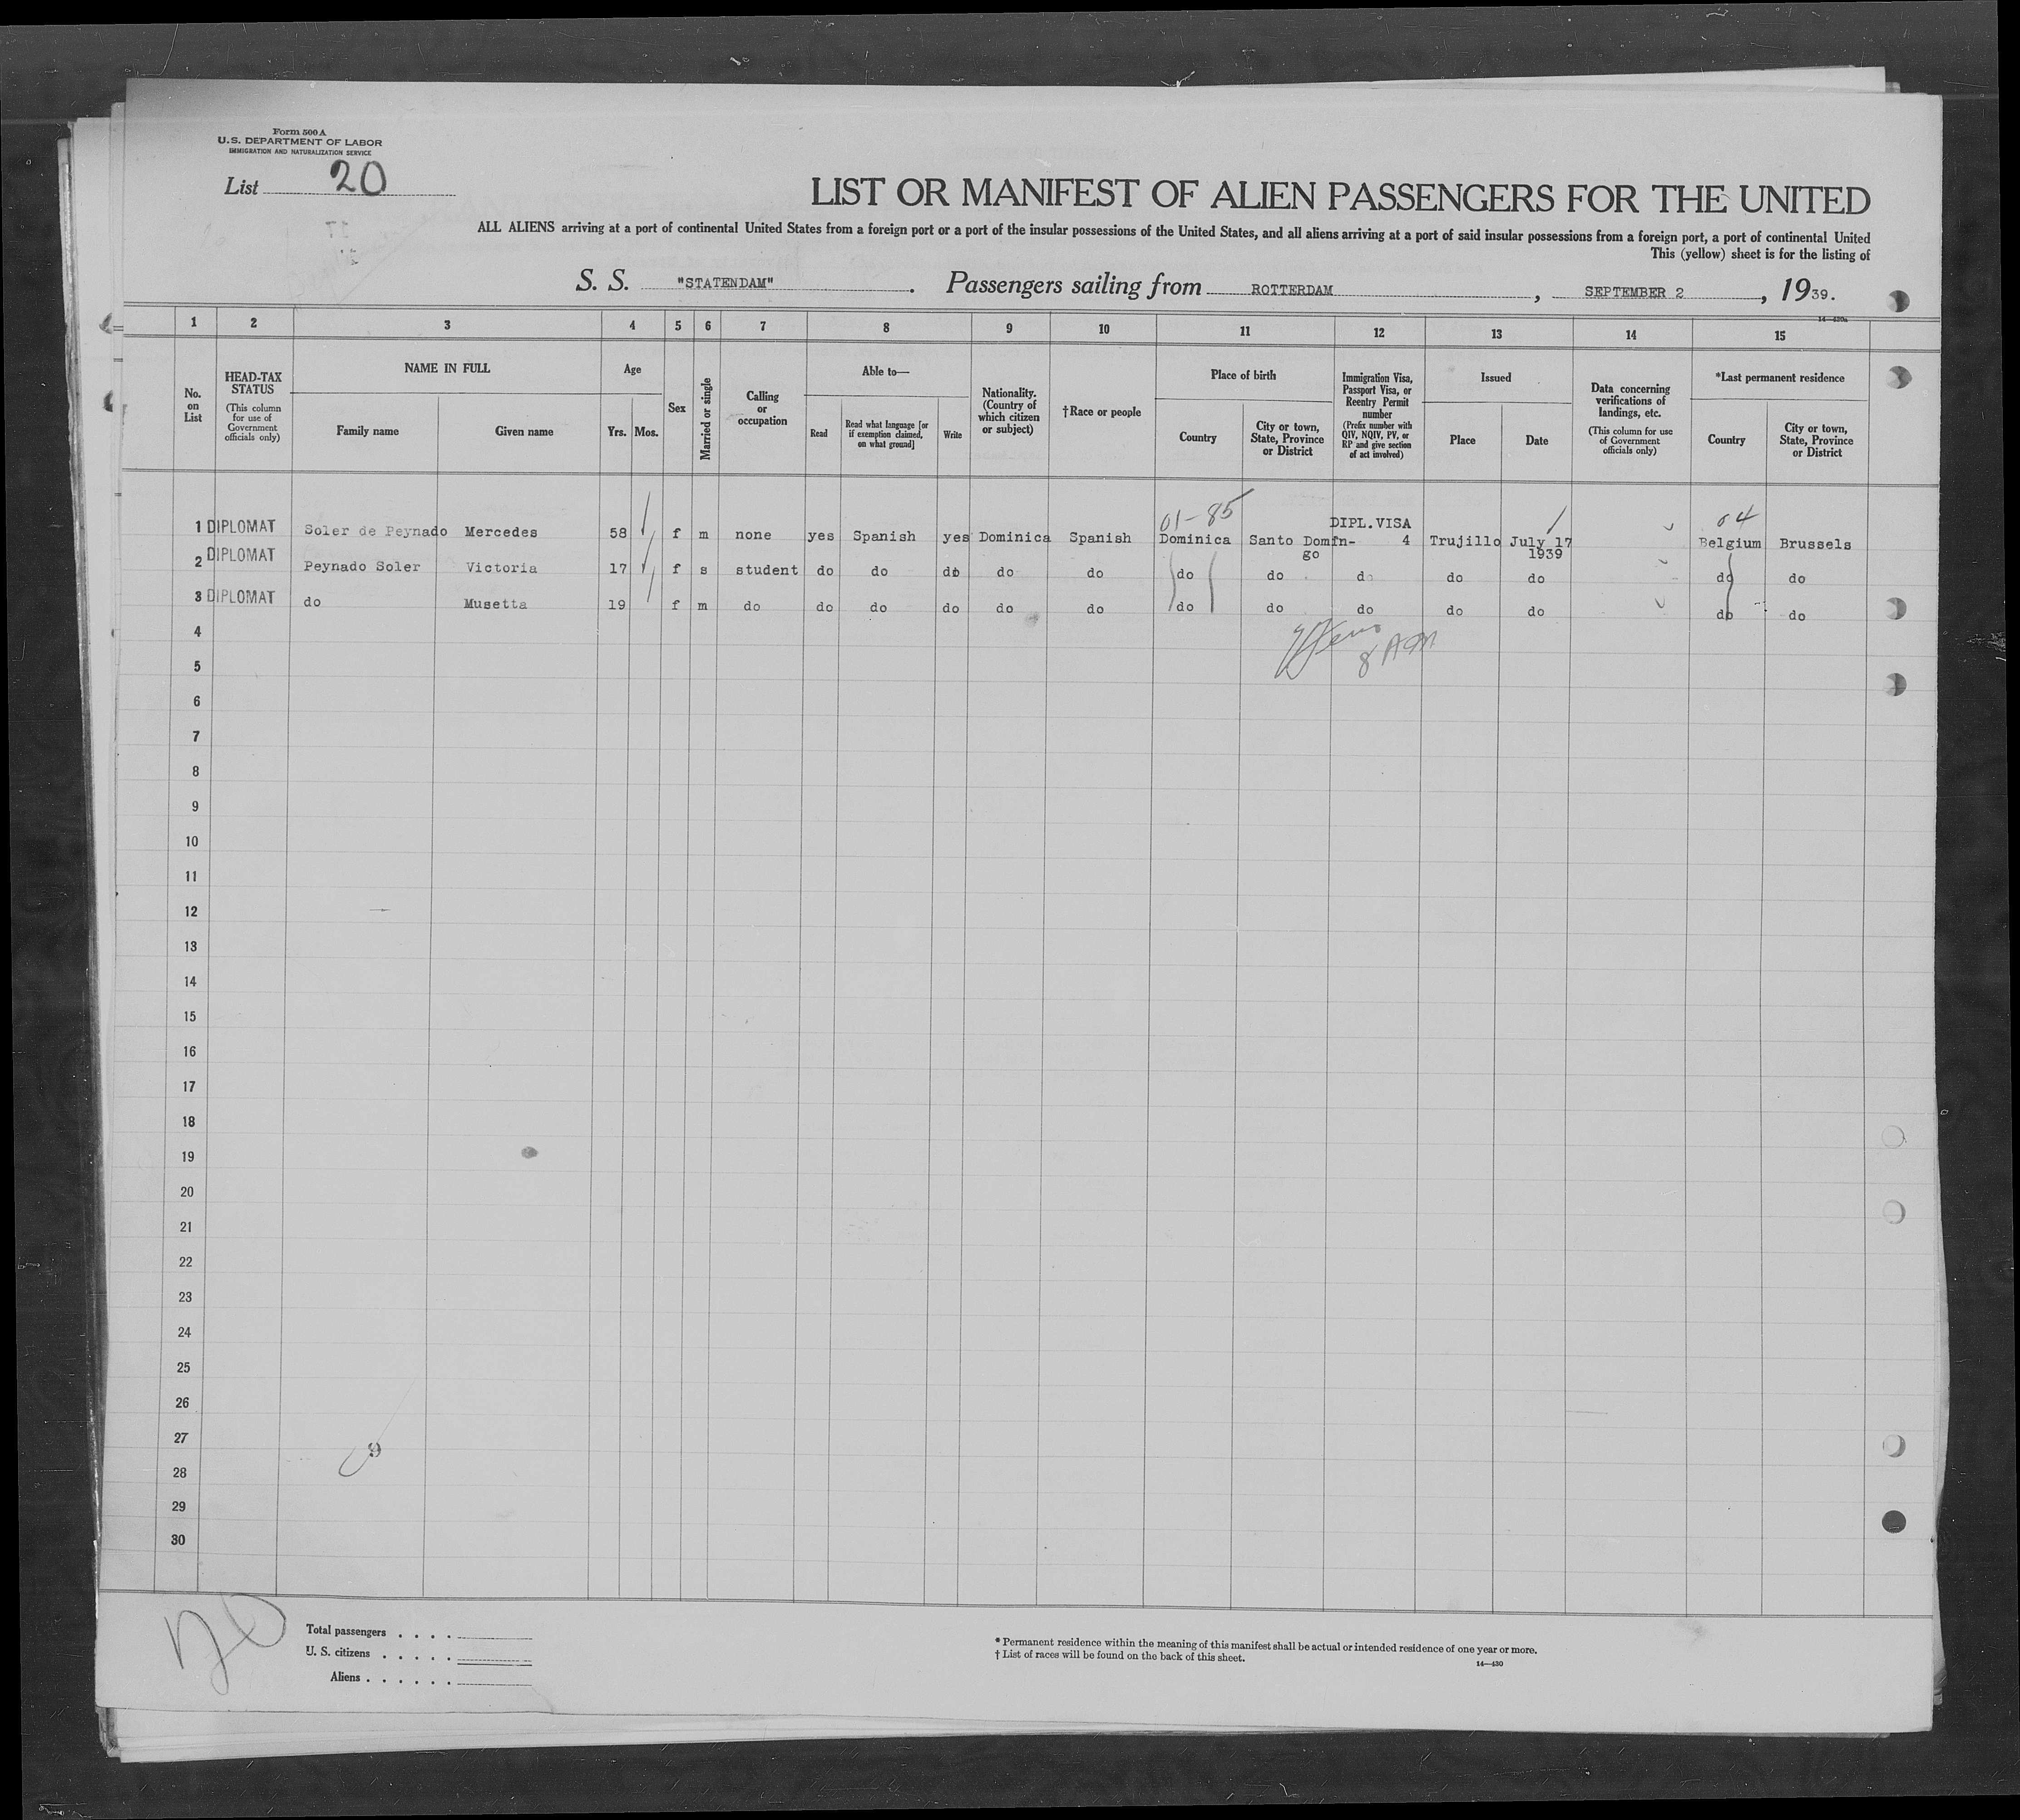 Form 500 A
U.S. DEPARTMENT OF LABOR
IMMIGRATION AND NATURALIZATION SERVICE
List 20
LIST OR MANIFEST OF ALIEN PASSENGERS FOR THE UNITED
ALL ALIENS arriving at a port of continental United States from a foreign port or a port of the insular possessions of the United States, and all aliens arriving at a port of said insular possessions from a foreign port, a port of continental United
This (yellow) sheet is for the listing of
S. S. "STATENDAM". Passengers sailing from ROTTERDAM, SEPTEMBER 2, 1939.
14—430a
1 2 3 4 5 6 7 8 9 10 11 12 13 14 15
No. on List
HEAD-TAX STATUS (This column for use of Government officials only)
NAME IN FULL
Family name Given name
Age
Yrs. Mos.
Sex
Married or single
Calling or occupation
Able to—
Read
Read what language [or if exemption claimed, on what ground]
Write
Nationality. (Country of which citizen or subject)
†Race or people
Place of birth
Country
City or town, State, Province or District
Immigration Visa, Passport Visa, or Reentry Permit number (Prefix number with QIV, NQIV, PV, or RP and give section of act involved)
Issued
Place Date
Data concerning verifications of landings, etc. (This column for use of Government officials only)
*Last permanent residence
Country
City or town, State, Province or District
01-85 DIPL.VISA 64
1 DIPLOMAT Soler de Peynado Mercedes 58 f m none yes Spanish yes Dominica Spanish Dominica Santo Domin- 4 Trujillo July 17 Belgium Brussels
go 1939
2 DIPLOMAT Peynado Soler Victoria 17 f s student do do do do do do do do do do do do
3 DIPLOMAT do Musetta 19 f m do do do do do do do do do do do do do
4
8 AM
5
6
7
8
9
10
11
12
13
14
15
16
17
18
19
20
21
22
23
24
25
26
27
9
28
29
30
20
Total passengers . . . .
U. S. citizens . . . . .
Aliens . . . . . .
* Permanent residence within the meaning of this manifest shall be actual or intended residence of one year or more.
† List of races will be found on the back of this sheet.
14—430